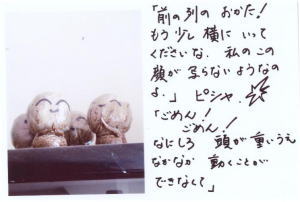 「前の列の おかた！
もう少し 横に いって
くださいな. 私の この
顔が 写らないようなの
よ.」 ピシャ.
「ごめん！
ごめん！
なにしろ 頭が 重いうえ
なかなか 動くことが
できなくて」